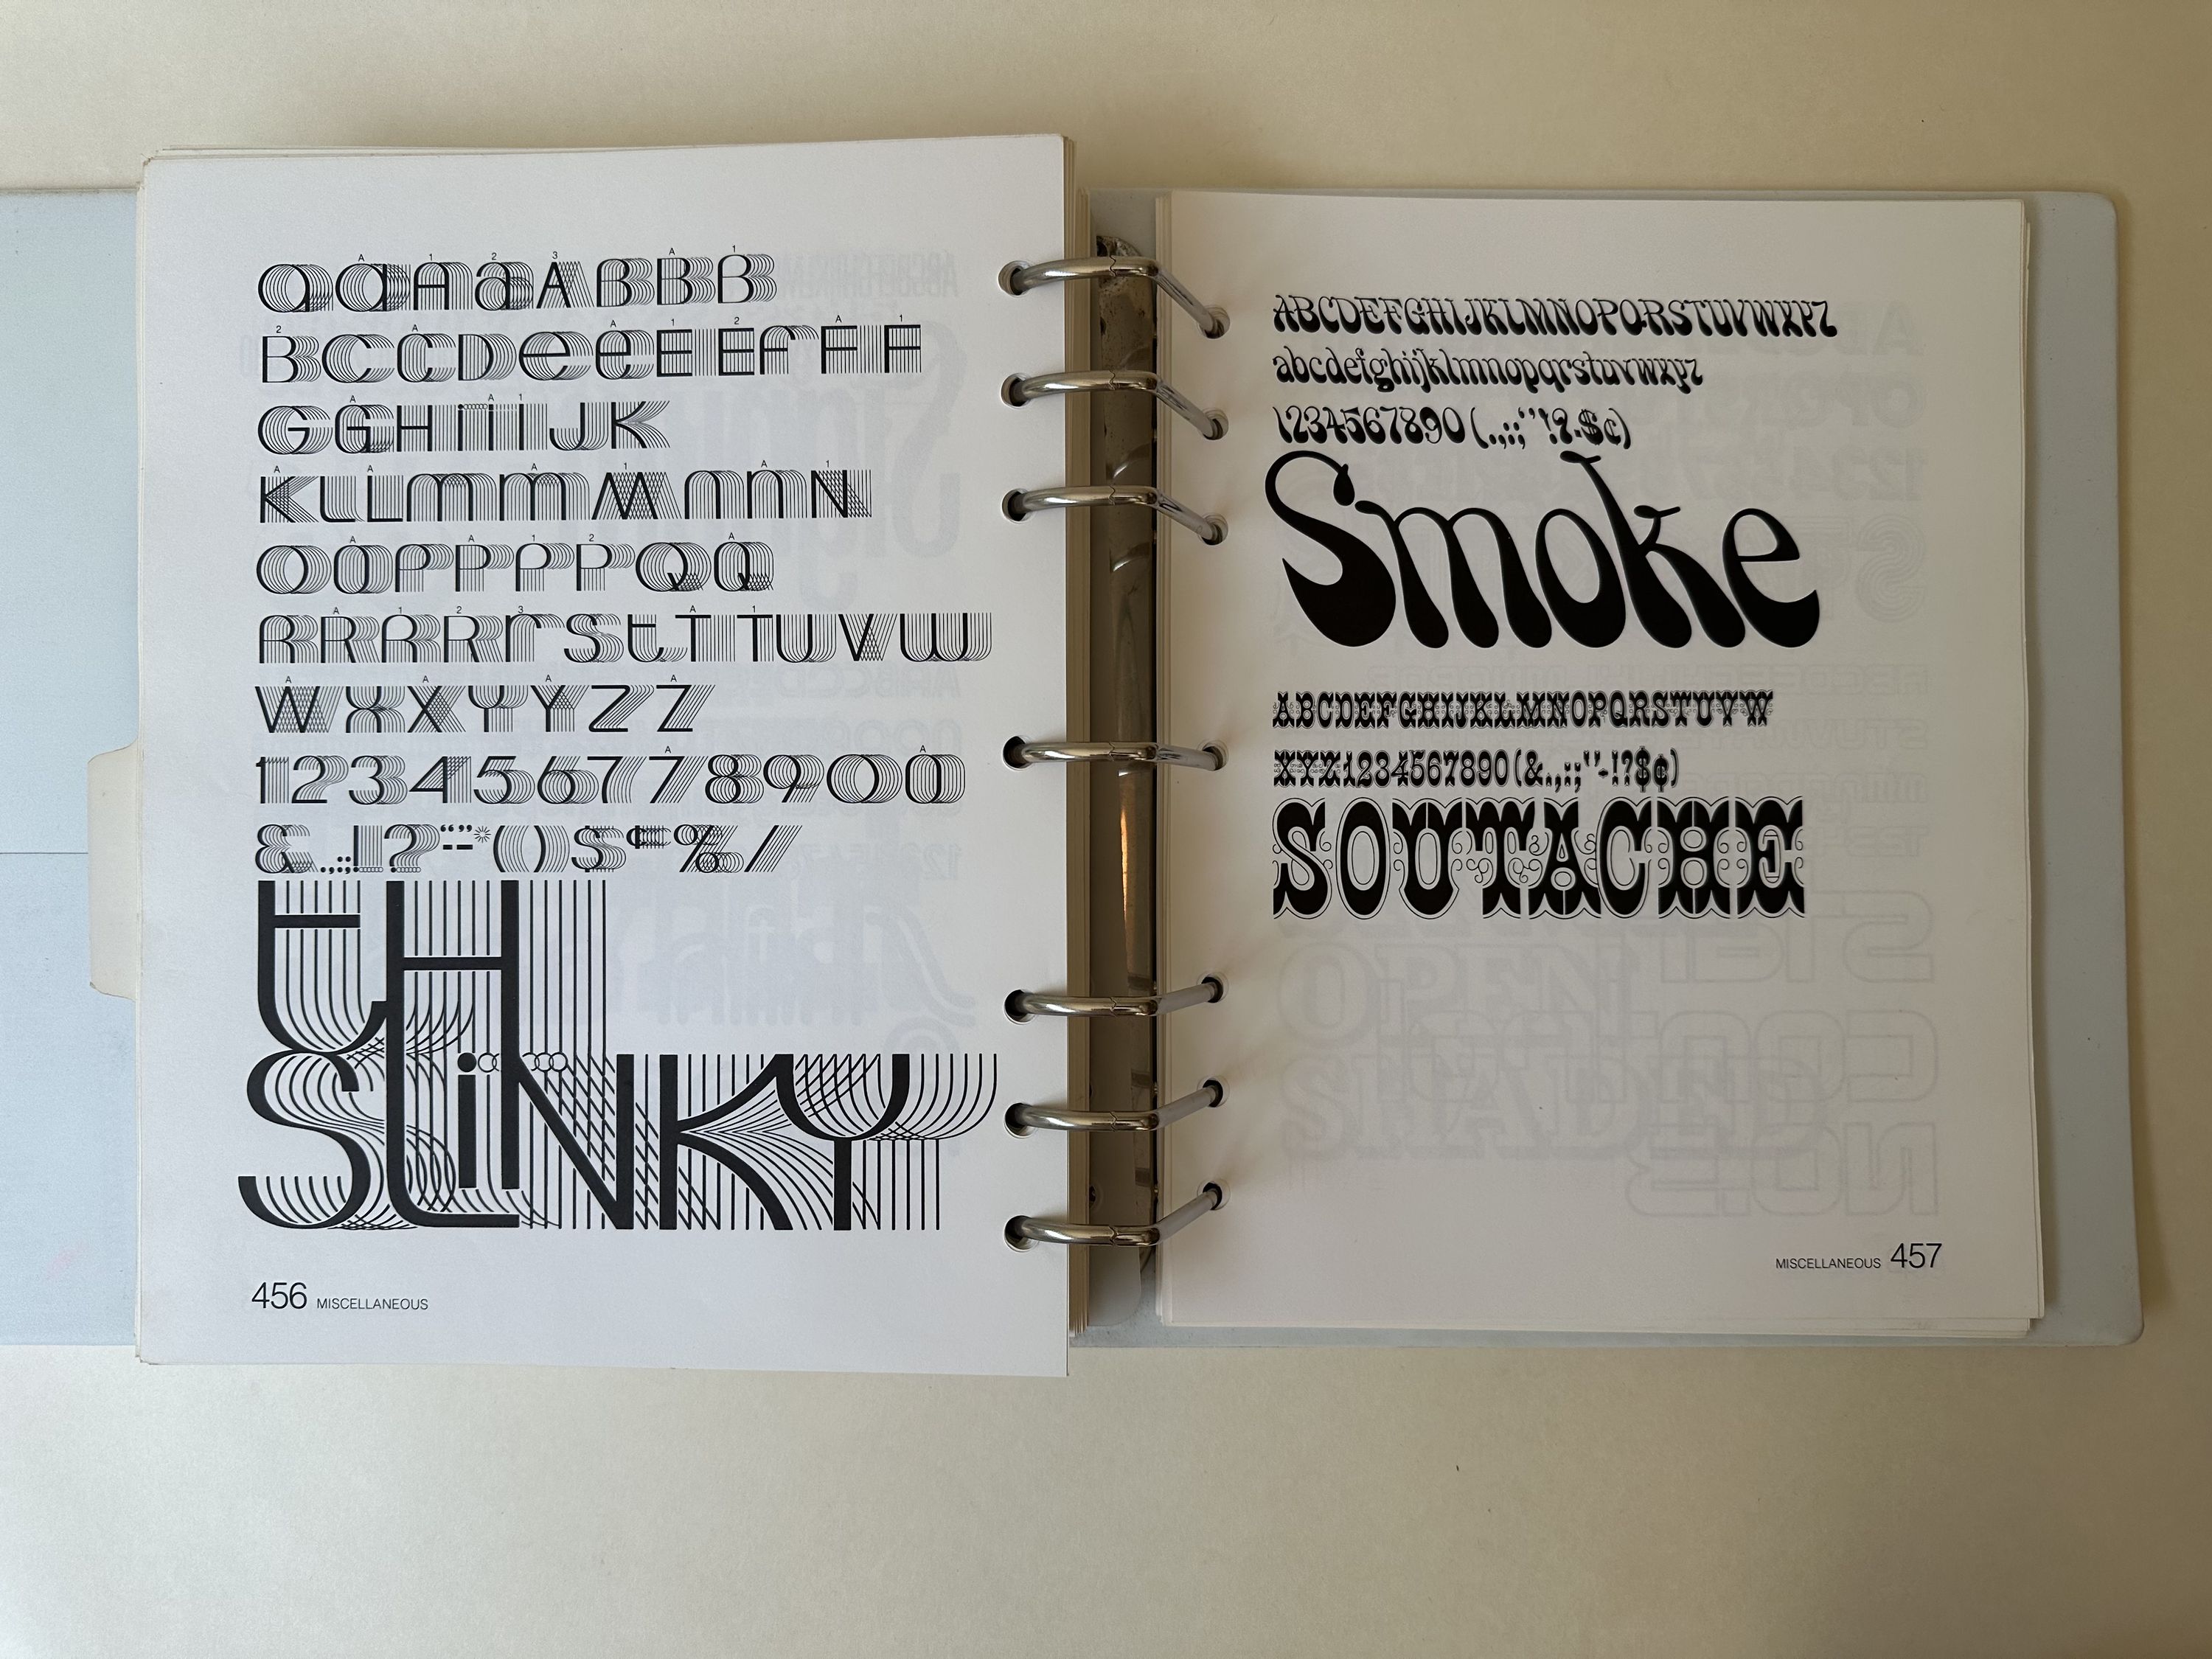 A 1 2 3 A 1
a a A a A B B B
2 A A 1 2 A 1
B C C D e e E E f F F
A A 1
G G H i i I J K
A A A 1 A 1
K K L L m m M n n N
A A 1 2 A
O O P P P P Q Q
A 1 2 3 A 1
R R R R r S t T T U V W
A A A A
W X X Y Y Z Z
A A
1 2 3 4 5 6 7 7 8 9 0 0
& . , ; : ! ? “ ” - * ( ) $ ¢ % /
tH
SLiNKY
456 MISCELLANEOUS
ABCDEFGHIJKLMNOPQRSTUVWXYZ
abcdefghijklmnopqrstuvwxyz
1234567890(.,:;‘’!?-$¢)
Smoke
ABCDEFGHIJKLMNOPQRSTUVW
XYZ1234567890(&.,:;‘’-!?$¢)
SOUTACHE
MISCELLANEOUS 457